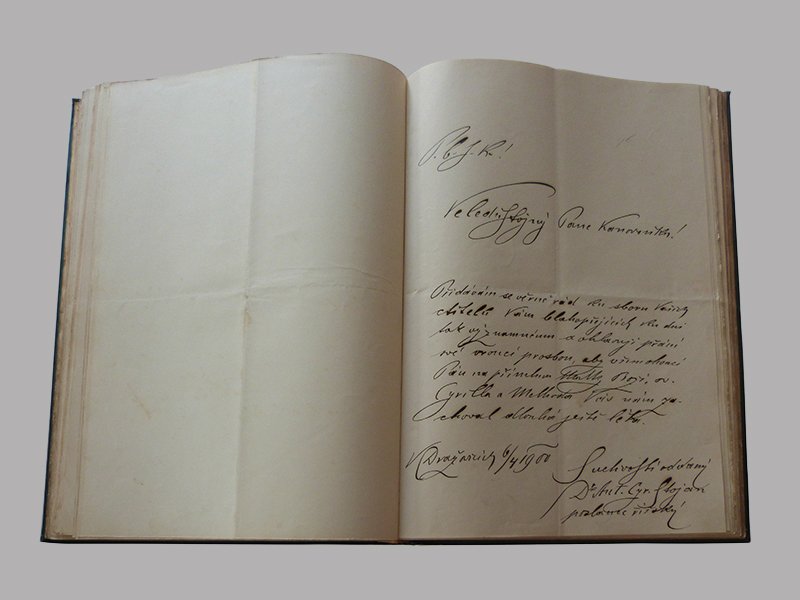 P. C. J. K.!
Veledůstojný Pane Kanovníku!
Přidávám se věrně rád ku sboru Vašich
ctitelů Vám blahopřejících ku dni
tak významnému a ohlašuji přání
své vroucí prosbou, aby všemohoucí
Pán na přímluvu Matky Boží, sv.
Cyrilla a Methoda Vás nám za-
choval dlouhá ještě léta.
V Dražovicích 6/4 1900
Srdcivosti oddaný
Dr Ant. Cyr. Stojan
poslanec říšský